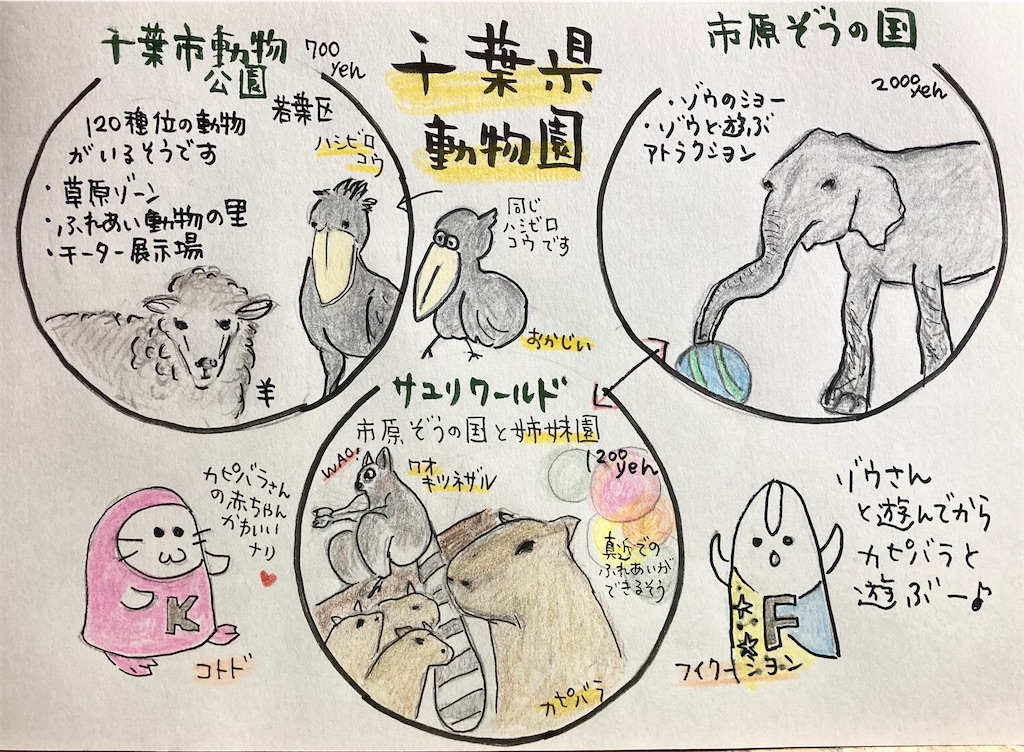 千葉県
動物園
千葉市動物
公園
700
yen
若葉区
120種位の動物
がいるそうです
・草原ゾーン
・ふれあい動物の里
・チーター展示場
ハシビロ
コウ
羊
同じ
ハシビロ
コウです
おかじい
市原ぞうの国
2000yen
・ゾウのショー
・ゾウと遊ぶ
アトラクション
サユリワールド
市原ぞうの国と姉妹園
1200
yen
WAO!
ワオ
キツネザル
真近での
ふれあいが
できるそう
カピバラ
カピバラさん
の赤ちゃん
かわいい
ナリ
K
コトド
ゾウさん
と遊んでから
カピバラと
遊ぶー♪
F
フィクーション